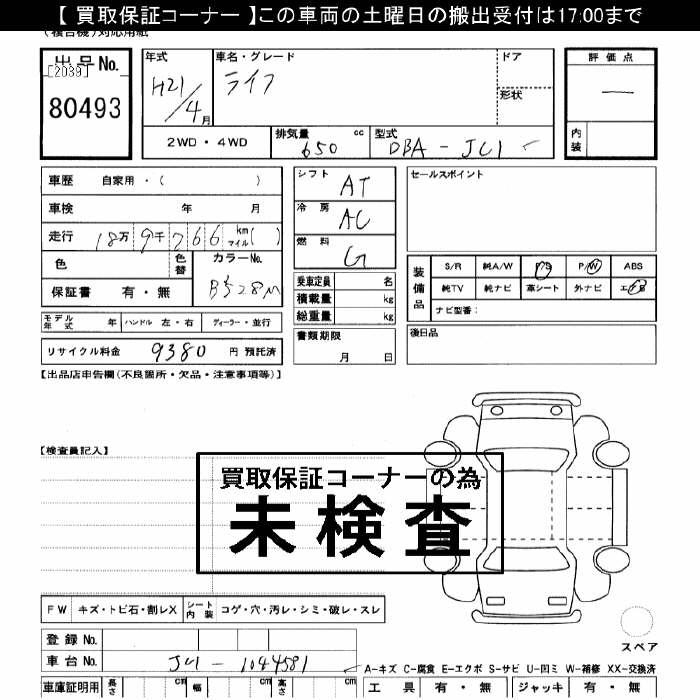 【 買取保証コーナー 】この車両の土曜日の搬出受付は17:00まで
出品No.
[2039]
80493
年式
H21/4月
車名・グレード
ライフ
ドア
形状
評価点
—
内装
2WD・4WD
排気量 650 cc
型式 DBA-JC1
車歴 自家用・( )
車検 年 月
走行 18万9千766 km マイル( )
色
色替
カラーNo.
B528M
保証書 有・無
モデル年式 年 ハンドル 左・右 ディーラー・並行
リサイクル料金 9380 円 預託済
シフト AT
冷房 AC
燃料 G
乗車定員 名
積載量 kg
総重量 kg
書類期限
月 日
セールスポイント
装備品
S/R 純A/W P/S P/W ABS
純TV 純ナビ 革シート 外ナビ エアB
ナビ型番:
後日品
【出品店申告欄(不良箇所・欠品・注意事項等)】
【検査員記入】
買取保証コーナーの為
未検査
FW キズ・トビ石・割レX シート内装 コゲ・穴・汚レ・シミ・破レ・スレ
スペア
登録No.
車台No. JC1-1044581
A-キズ C-腐食 E-エクボ S-サビ U-凹ミ W-補修 XX-交換済
車庫証明用 長さ cm 幅 cm 高さ cm
工具 有・無 ジャッキ 有・無